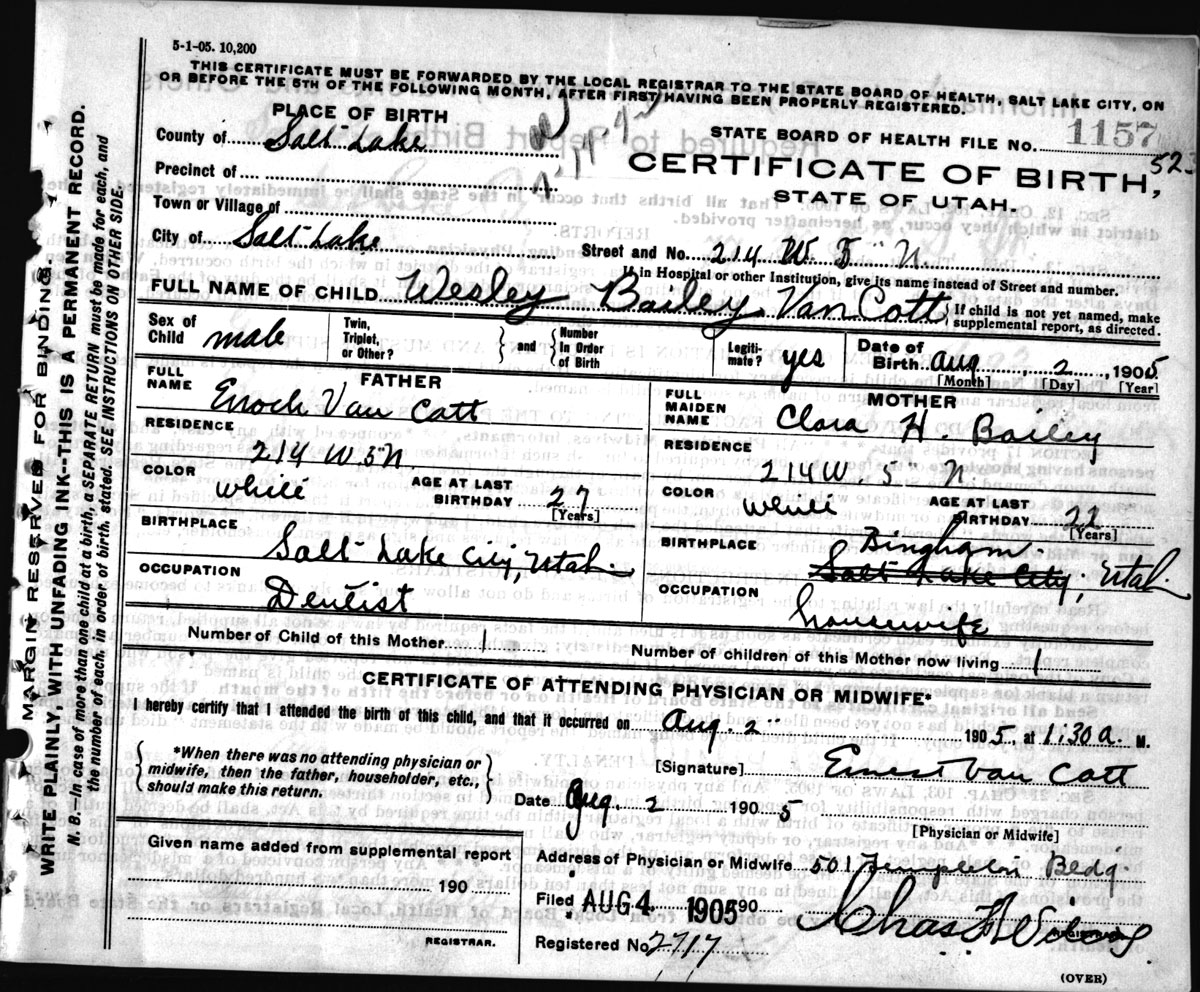 5-1-05. 10,200
THIS CERTIFICATE MUST BE FORWARDED BY THE LOCAL REGISTRAR TO THE STATE BOARD OF HEALTH, SALT LAKE CITY, ON
OR BEFORE THE 5TH OF THE FOLLOWING MONTH, AFTER FIRST HAVING BEEN PROPERLY REGISTERED.
PLACE OF BIRTH
STATE BOARD OF HEALTH FILE No. 1157
52
County of Salt Lake
CERTIFICATE OF BIRTH,
Precinct of
STATE OF UTAH.
Town or Village of
City of Salt Lake
Street and No. 214 W 5" N.
If in Hospital or other Institution, give its name instead of Street and number.
FULL NAME OF CHILD Wesley Bailey Van Cott
If child is not yet named, make
supplemental report, as directed.
Sex of Child male
Twin, Triplet, or Other?
and
Number In Order of Birth
Legitimate? yes
Date of Birth Aug 2, 1905
[Month] [Day] [Year]
FATHER
FULL NAME Enoch Van Cott
RESIDENCE
214 W 5 N
COLOR White
AGE AT LAST BIRTHDAY 27
[Years]
BIRTHPLACE
Salt Lake City, Utah
OCCUPATION
Dentist
MOTHER
FULL MAIDEN NAME Clara H. Bailey
RESIDENCE
214 W. 5" N
COLOR White
AGE AT LAST BIRTHDAY 22
[Years]
BIRTHPLACE Bingham
Salt Lake City, Utah
OCCUPATION
housewife
Number of Child of this Mother 1
Number of children of this Mother now living 1
CERTIFICATE OF ATTENDING PHYSICIAN OR MIDWIFE
I hereby certify that I attended the birth of this child, and that it occurred on Aug. 2" 1905 at 1:30 a. M.
*When there was no attending physician or
midwife, then the father, householder, etc.,
should make this return.
[Signature] Ernest Van Cott
Date Aug. 2 1905
[Physician or Midwife]
Given name added from supplemental report
190
REGISTRAR.
Address of Physician or Midwife 501 Templeton Bldg.
Filed AUG 4 1905 190
REGISTRAR
Registered No 2717
(OVER)
MARGIN RESERVED FOR BINDING
WRITE PLAINLY, WITH UNFADING INK--THIS IS A PERMANENT RECORD.
N. B.--In case of more than one child at a birth, a SEPARATE RETURN must be made for each, and
the number of each, in order of birth, stated. SEE INSTRUCTIONS ON OTHER SIDE.